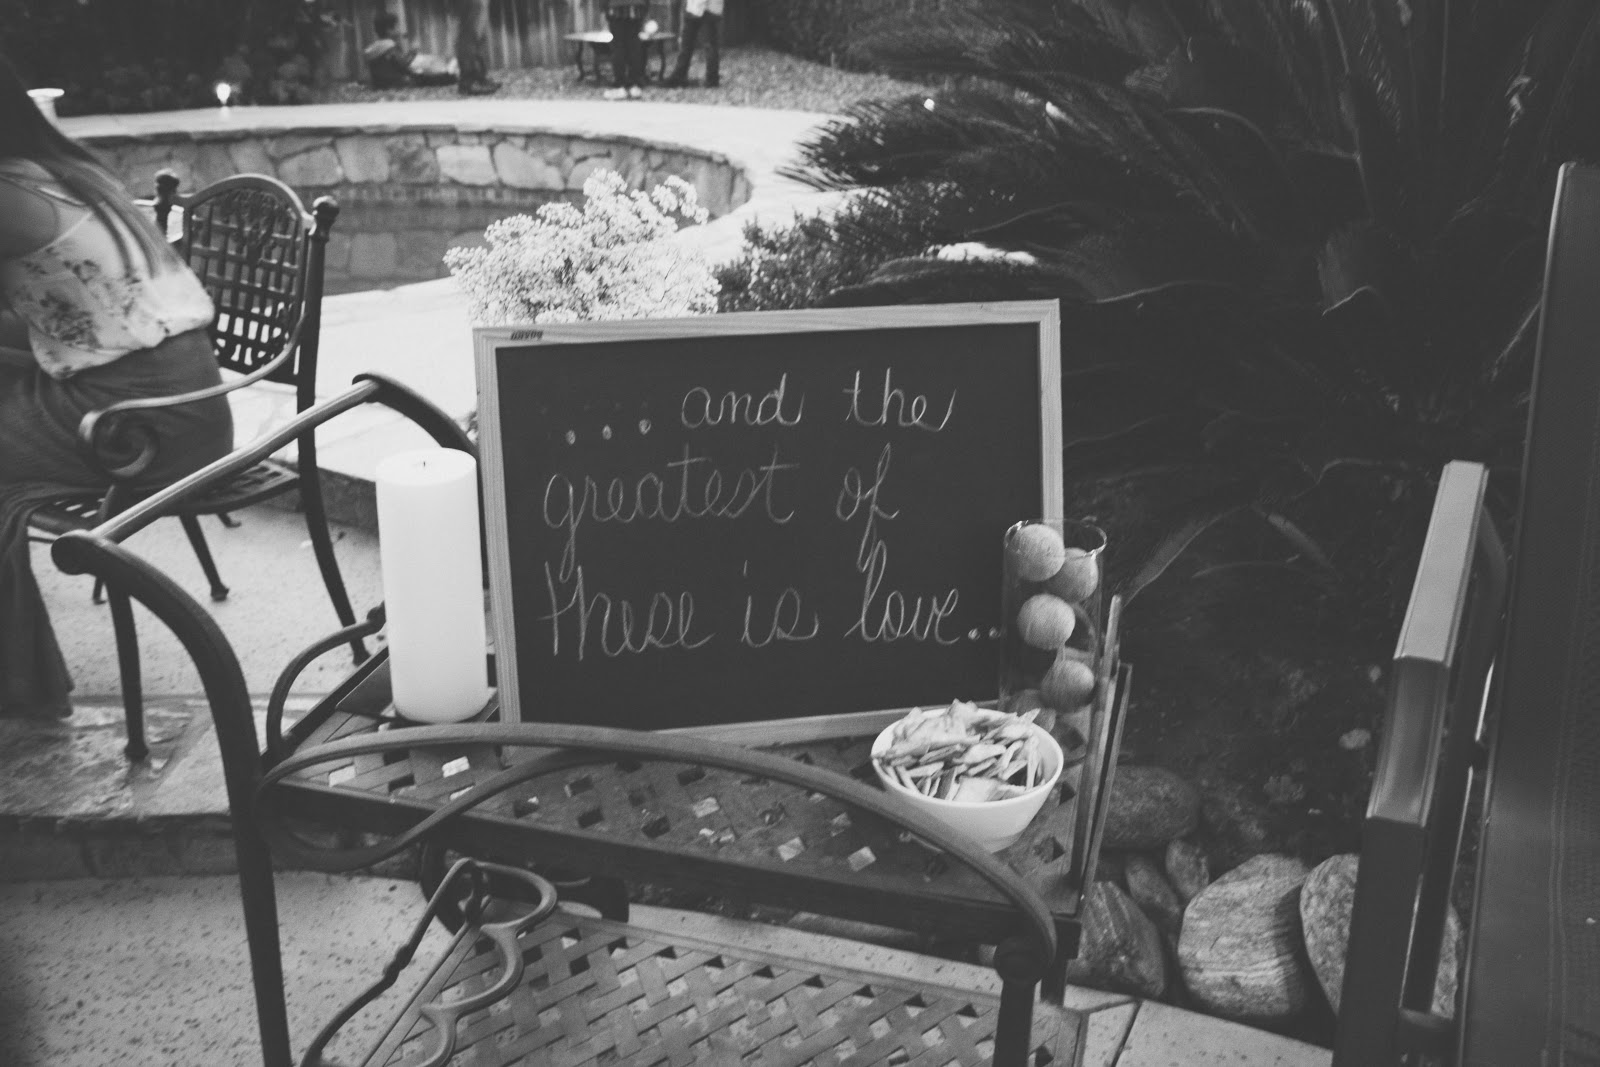 ....and the
greatest of
these is love..